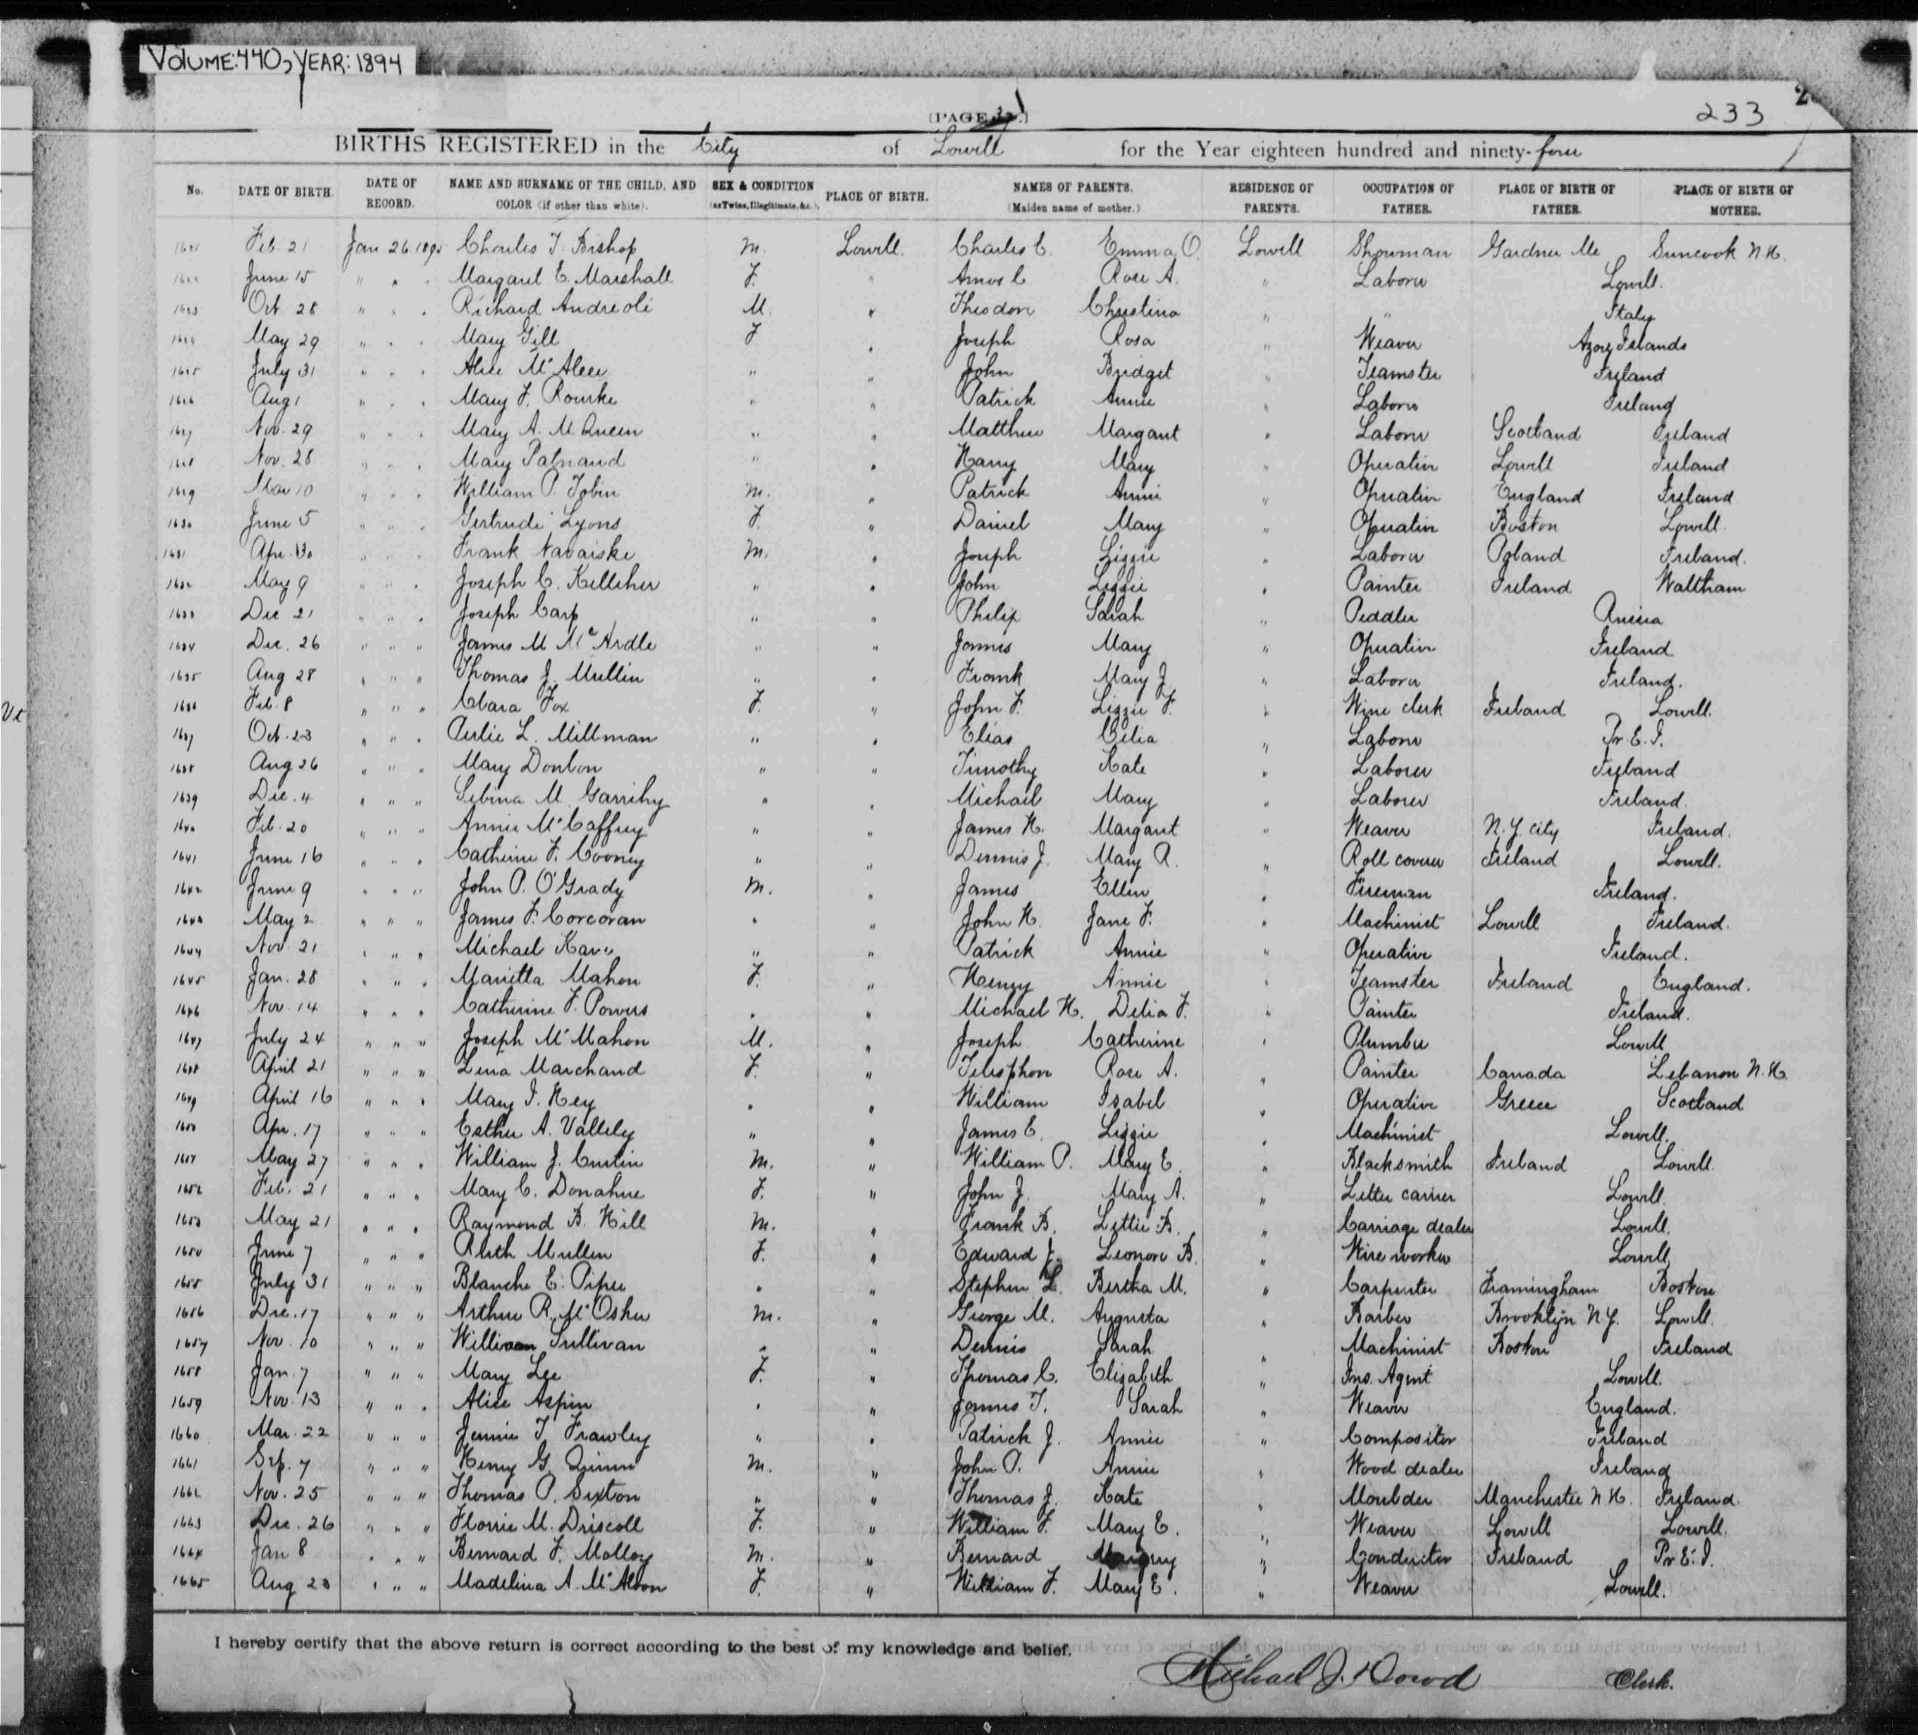 VOLUME:440, YEAR:1894
233
(PAGE
BIRTHS REGISTERED in the City of Lowell for the Year eighteen hundred and ninety-four
No. DATE OF BIRTH. DATE OF RECORD. NAME AND SURNAME OF THE CHILD, AND COLOR (if other than white). SEX & CONDITION (as Twins, Illegitimate, &c.). PLACE OF BIRTH. NAMES OF PARENTS. (Maiden name of mother.) RESIDENCE OF PARENTS. OCCUPATION OF FATHER. PLACE OF BIRTH OF FATHER. PLACE OF BIRTH OF MOTHER.
1621 Feb. 21 Jan 26.1895 Charles T. Bishop M. Lowell. Charles E. Emma O. Lowell Showman Gardner Me Suncook N.H.
1622 June 15 " " " Margaret E. Marshall F. " Amos C Rose A. " Laborer Lowell.
1623 Oct. 28 " " " Richard Andreoli M. " Theodore Christina " " Italy
1624 May 29 " " " Mary Gill F " Joseph Rosa " Weaver Azore Islands
1625 July 31 " " " Alice McAleer " " John Bridget " Teamster Ireland
1626 Aug 1 " " " Mary F. Rourke " " Patrick Annie " Laborer Ireland
1627 Nov. 29 " " " Mary A. McQueen " " Matthew Margaret " Laborer Scotland Ireland
1628 Nov. 28 " " " Mary " " Harry Mary " Operative Lowell Ireland
1629 Mar 10 " " " William P. Tobin M. " Patrick Annie " Operative England Ireland
1630 June 5 " " " Gertrude Lyons F. " Daniel Mary " Operative Boston Lowell.
1631 Apr. 30 " " " Frank Navaiske M. " Joseph Lizzie " Laborer Poland Ireland.
1632 May 9 " " " Joseph C. Kelliher " " John Lizzie " Painter Ireland Waltham
1633 Dec 21 " " " Joseph Carp " " Philip Sarah " Peddler Russia
1634 Dec. 26 " " " James M McArdle " " James Mary " Operative Ireland
1635 Aug 28 " " " Thomas J. Mullin " " Frank Mary J " Laborer Ireland.
1636 Feb. 8 " " " Clara Fox F. " John F. Lizzie F. " Wine clerk Ireland Lowell.
1637 Oct. 23 " " " L. Millman " " Elias Celia " Laborer Pr. E. I.
1638 Aug 26 " " " Mary Donlon " " Timothy Kate " Laborer Ireland
1639 Dec. 4 " " " Sebina M. Garrihy " " Michael Mary " Laborer Ireland.
1640 Feb. 20 " " " Annie McCaffrey " " James H. Margaret " Weaver N.Y. city Ireland.
1641 June 16 " " " Catherine F. Cooney " " Dennis J. Mary A. " Roll coverer Ireland Lowell.
1642 June 9 " " " John P. O'Grady M. " James Ellen " Fireman Ireland.
1643 May 2 " " " James F. Corcoran " " John H. Jane F. " Machinist Lowell Ireland.
1644 Nov 21 " " " Michael " " Patrick Annie " Operative Ireland.
1645 Jan. 28 " " " Marietta Mahon F. " Henry Annie " Teamster Ireland England.
1646 Nov. 14 " " " Catherine F. Powers " " Michael H. Delia F. " Painter Ireland.
1647 July 24 " " " Joseph McMahon M. " Joseph Catherine " Plumber Lowell
1648 April 21 " " " Lena Marchand F. " Telesphore Rose A. " Painter Canada Lebanon N.H.
1649 April 16 " " " Mary I. Key " " William Isabel " Operative Greece Scotland
1650 Apr. 17 " " " Esther A. Vallely " " James E. Lizzie " Machinist Lowell.
1651 May 27 " " " William J. Curtin M. " William P. Mary E. " Blacksmith Ireland Lowell.
1652 Feb. 21 " " " Mary C. Donahue F. " John J. Mary A. " Letter carrier Lowell.
1653 May 21 " " " Raymond B. Hill M. " Frank B. Lettie B. " Carriage dealer Lowell.
1654 June 7 " " " Ruth Mullen F. " Edward J. Leonore B. " Wire worker Lowell
1655 July 31 " " " Blanche E. Piper " " Stephen L. Bertha M. " Carpenter Framingham Boston
1656 Dec. 17 " " " Arthur R. McOsker M. " George M. Augusta " Barber Brooklyn N.Y. Lowell.
1657 Nov. 10 " " " William Sullivan " " Dennis Sarah " Machinist Boston Ireland
1658 Jan. 7 " " " Mary Lee F. " Thomas C. Elizabeth " Ins. Agent Lowell.
1659 Nov. 13 " " " Alice Aspin " " James T. Sarah " Weaver England.
1660 Mar. 22 " " " Jennie T. Frawley " " Patrick J. Annie " Compositor Ireland
1661 Sep. 7 " " " Henry G. Quinn M. " John P. Annie " Wood dealer Ireland
1662 Nov. 25 " " " Thomas P. Sexton " " Thomas J. Kate " Moulder Manchester N.H. Ireland.
1663 Dec. 26 " " " Florrie M. Driscoll F. " William F. Mary E. " Weaver Lowell Lowell.
1664 Jan 8 " " " Bernard F. Molloy M. " Bernard " Conductor Ireland Pr E. I.
1665 Aug 23 " " " Madelina A. McAloon F. " William F. Mary E. " Weaver Lowell.
I hereby certify that the above return is correct according to the best of my knowledge and belief.
Michael J. Dowd Clerk.
Vt